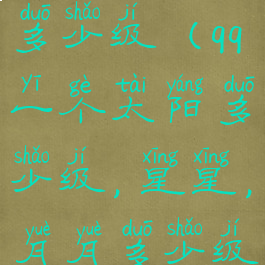 duō shǎo jí
多少级（qq
yī gè tài yáng duō
一个太阳多
shǎo jí xīng xīng
少级，星星，
yuè yuè duō shǎo jí
月月多少级